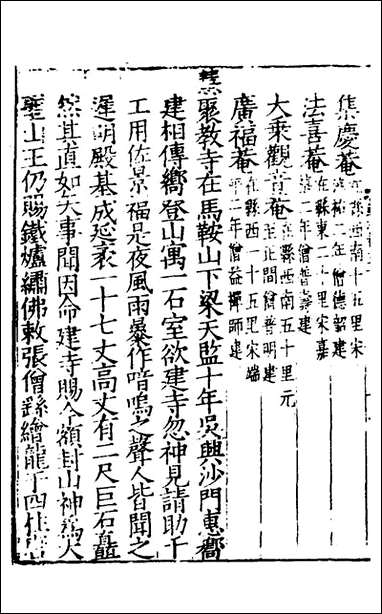 集慶菴在縣西南十五里宋
淳祐二年僧德韶建
法喜菴在縣東二十里宋嘉
二年僧普壽建
大乘觀音菴在縣西南五十里元
至正間僧普明建
廣福菴在縣西一十五里宋端
平二年僧益禪師建
聚教寺在馬鞍山下梁天監十年吳興沙門惠嚮
建相傳嚮登山寓一石室欲建寺忽神見請助千
工用佐景福是夜風雨暴作喑嗚之聲人皆聞之
遲明殿基成延袤一十七丈高丈有二尺巨石矗
然其直如矢事聞因命建寺賜今額封山神爲大
聖山王仍賜鐵爐繡佛敕張僧繇繪龍于四柱